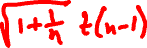 √(1+1/n) t(n-1)